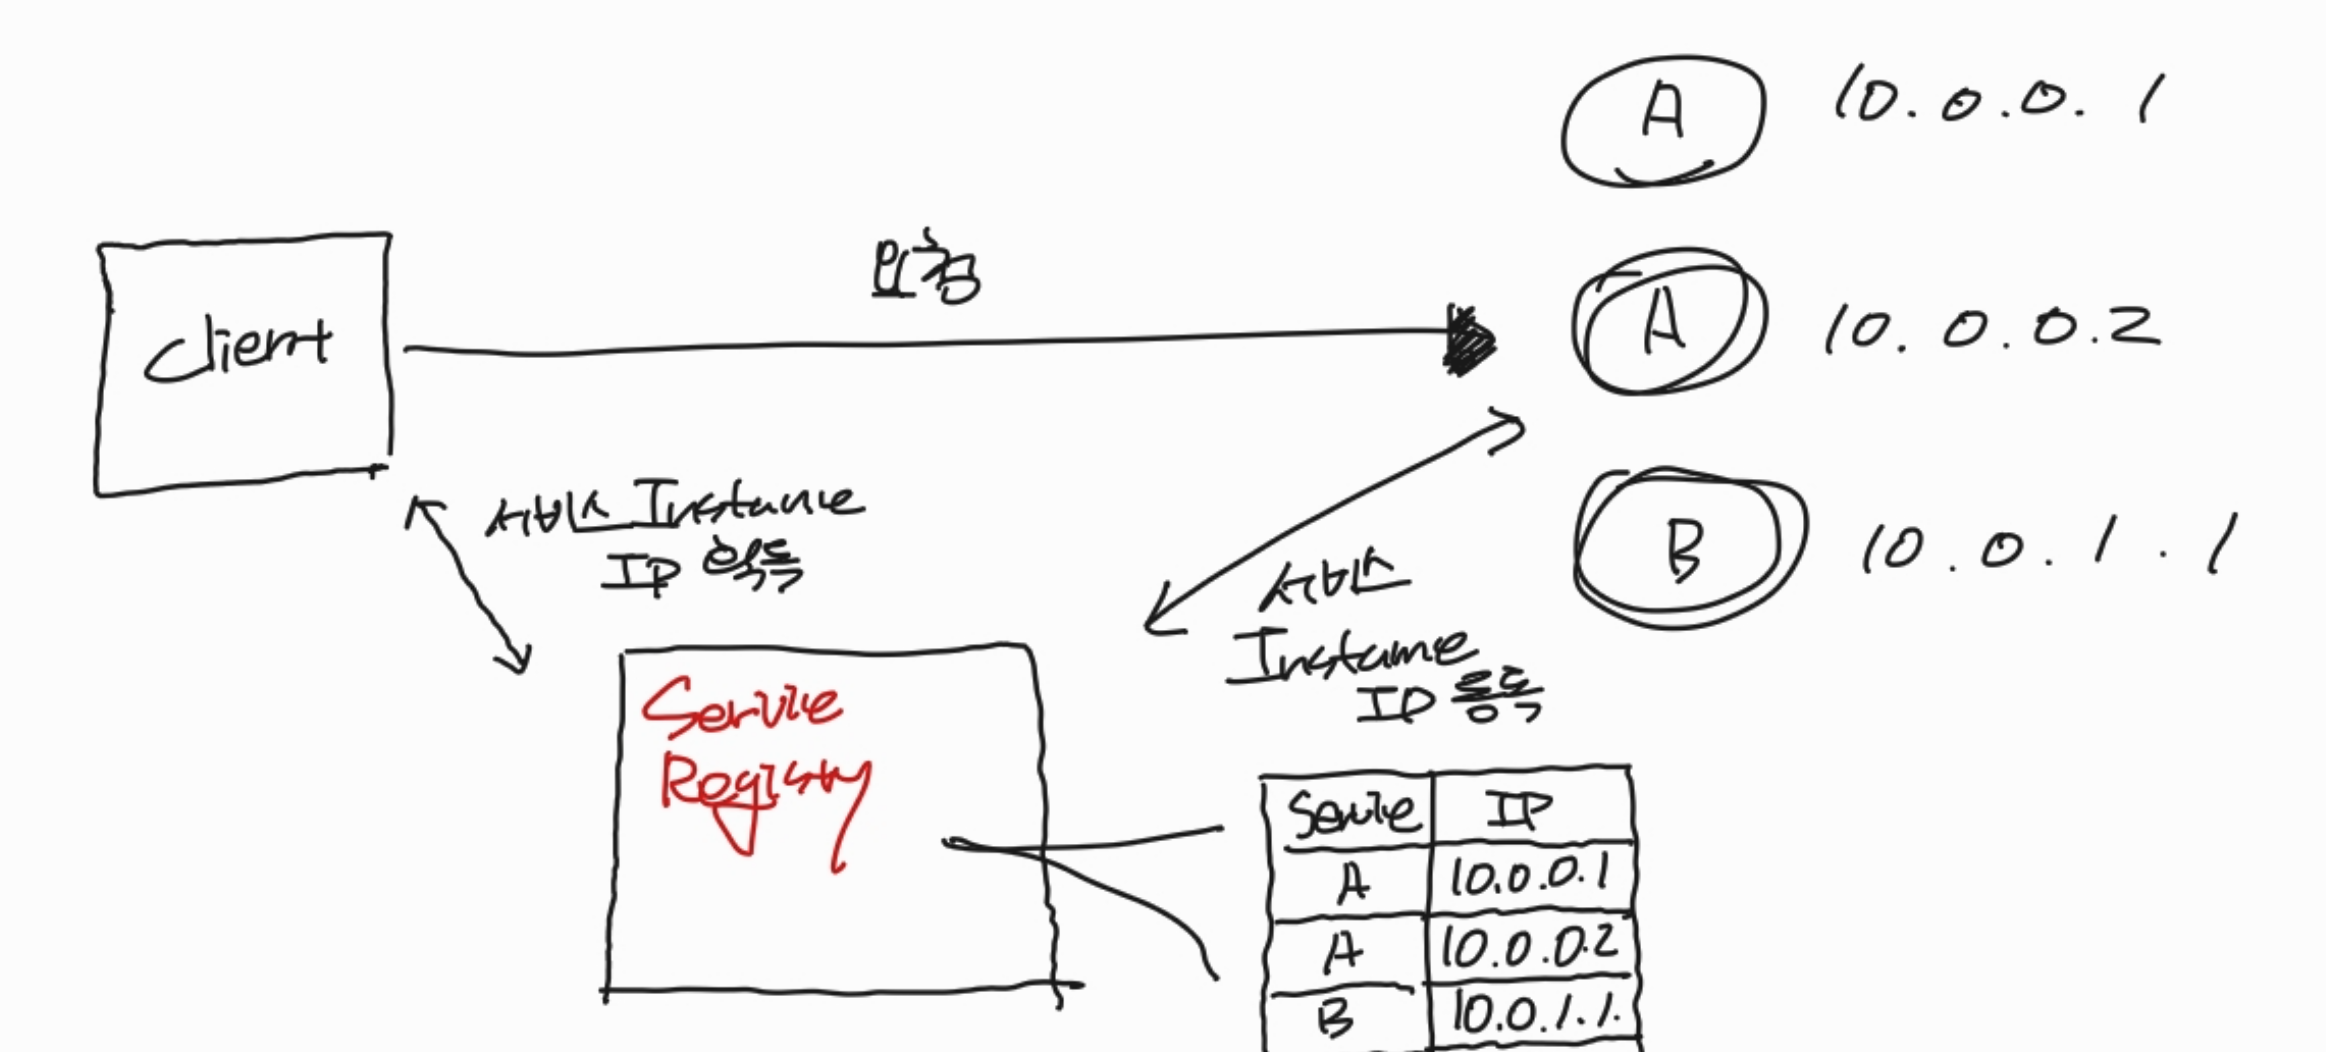 A 10.0.0.1
요청
Client
A 10.0.0.2
서비스 Instance
IP 획득
B 10.0.1.1
서비스
Instance
IP 등록
Service
Registry
Service IP
A 10.0.0.1
A 10.0.0.2
B 10.0.1.1.